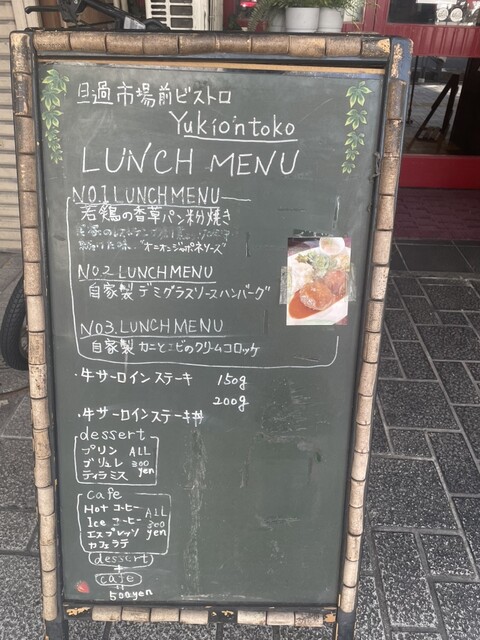 旦過市場前ビストロ
Yukiontoko
LUNCH MENU
NO.1 LUNCH MENU
若鶏の香草パン粉焼き
"オニオンジャポネソーズ"
NO.2 LUNCH MENU
自家製 デミグラスソースハンバーグ
NO3. LUNCH MENU
自家製 カニとエビのクリームコロッケ
・牛サーロインステーキ 150g
200g
・牛サーロインステーキ丼
dessert
プリン ALL
ブリュレ 300
ティラミス yen
cafe
Hot コーヒー ALL
Ice コーヒー 300
エスプレッソ yen
カフェラテ
dessert
+
cafe
500yen